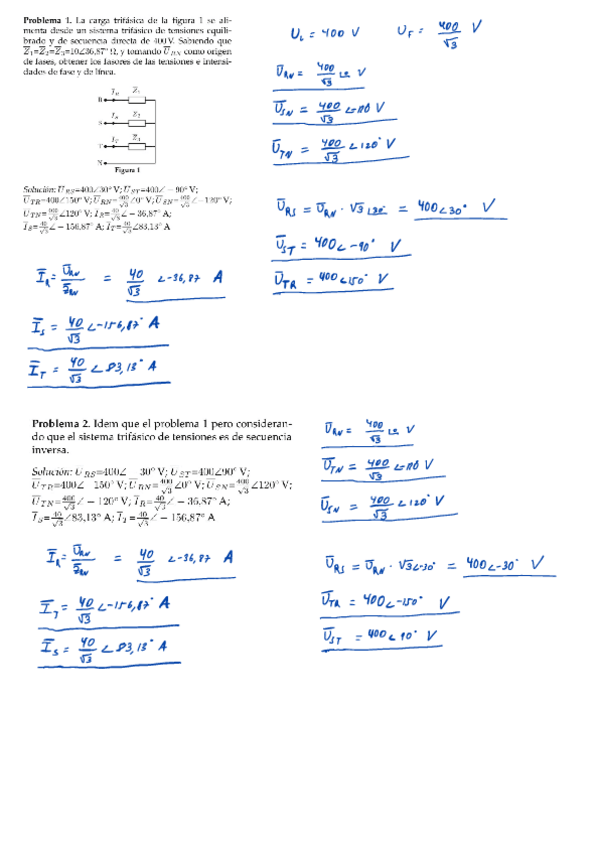 Problema 1. La carga trifásica de la figura 1 se ali-
menta desde un sistema trifásico de tensiones equili-
brado y de secuencia directa de 400 V. Sabiendo que
Z̅₁=Z̅₂=Z̅₃=10∠36,87° Ω, y tomando U̅_RN como origen
de fases, obtener los fasores de las tensiones e intensi-
dades de fase y de línea.
I̅_R Z̅₁
R
I̅_S Z̅₂
S
I̅_T Z̅₃
T
N
Figura 1
Solución: U̅_RS=400∠30° V; U̅_ST=400∠−90° V;
U̅_TR=400∠150° V; U̅_RN=400/√3∠0° V; U̅_SN=400/√3∠−120° V;
U̅_TN=400/√3∠120° V; I̅_R=40/√3∠−36,87° A;
I̅_S=40/√3∠−156,87° A; I̅_T=40/√3∠83,13 A
U_L = 400 V U_F = 400/√3 V
U̅_RN = 400/√3 V
U̅_SN = 400/√3 V
U̅_TN = 400/√3 ∠120° V
U̅_RS = U̅_RN · √3 ∠30° = 400∠30° V
U̅_ST = 400∠-90° V
U̅_TR = 400∠150° V
I̅_R = U̅_RN/Z̅_RN = 40/√3 ∠-36,87 A
I̅_S = 40/√3 ∠-156,87° A
I̅_T = 40/√3 ∠83,13° A
Problema 2. Idem que el problema 1 pero consideran-
do que el sistema trifásico de tensiones es de secuencia
inversa.
Solución: U̅_RS=400∠−30° V; U̅_ST=400∠90° V;
U̅_TR=400∠−150° V; U̅_RN=400/√3∠0° V; U̅_SN=400/√3∠120° V;
U̅_TN=400/√3∠−120° V; I̅_R=40/√3∠−36,87° A;
I̅_S=40/√3∠83,13° A; I̅_T=40/√3∠−156,87° A
U̅_RN = 400/√3 V
U̅_TN = 400/√3 V
U̅_SN = 400/√3 ∠120° V
I̅_R = U̅_RN/Z̅_RN = 40/√3 ∠-36,87 A
I̅_T = 40/√3 ∠-156,87° A
I̅_S = 40/√3 ∠83,13° A
U̅_RS = U̅_RN · √3∠-30° = 400∠-30° V
U̅_TR = 400∠-150° V
U̅_ST = 400∠90° V